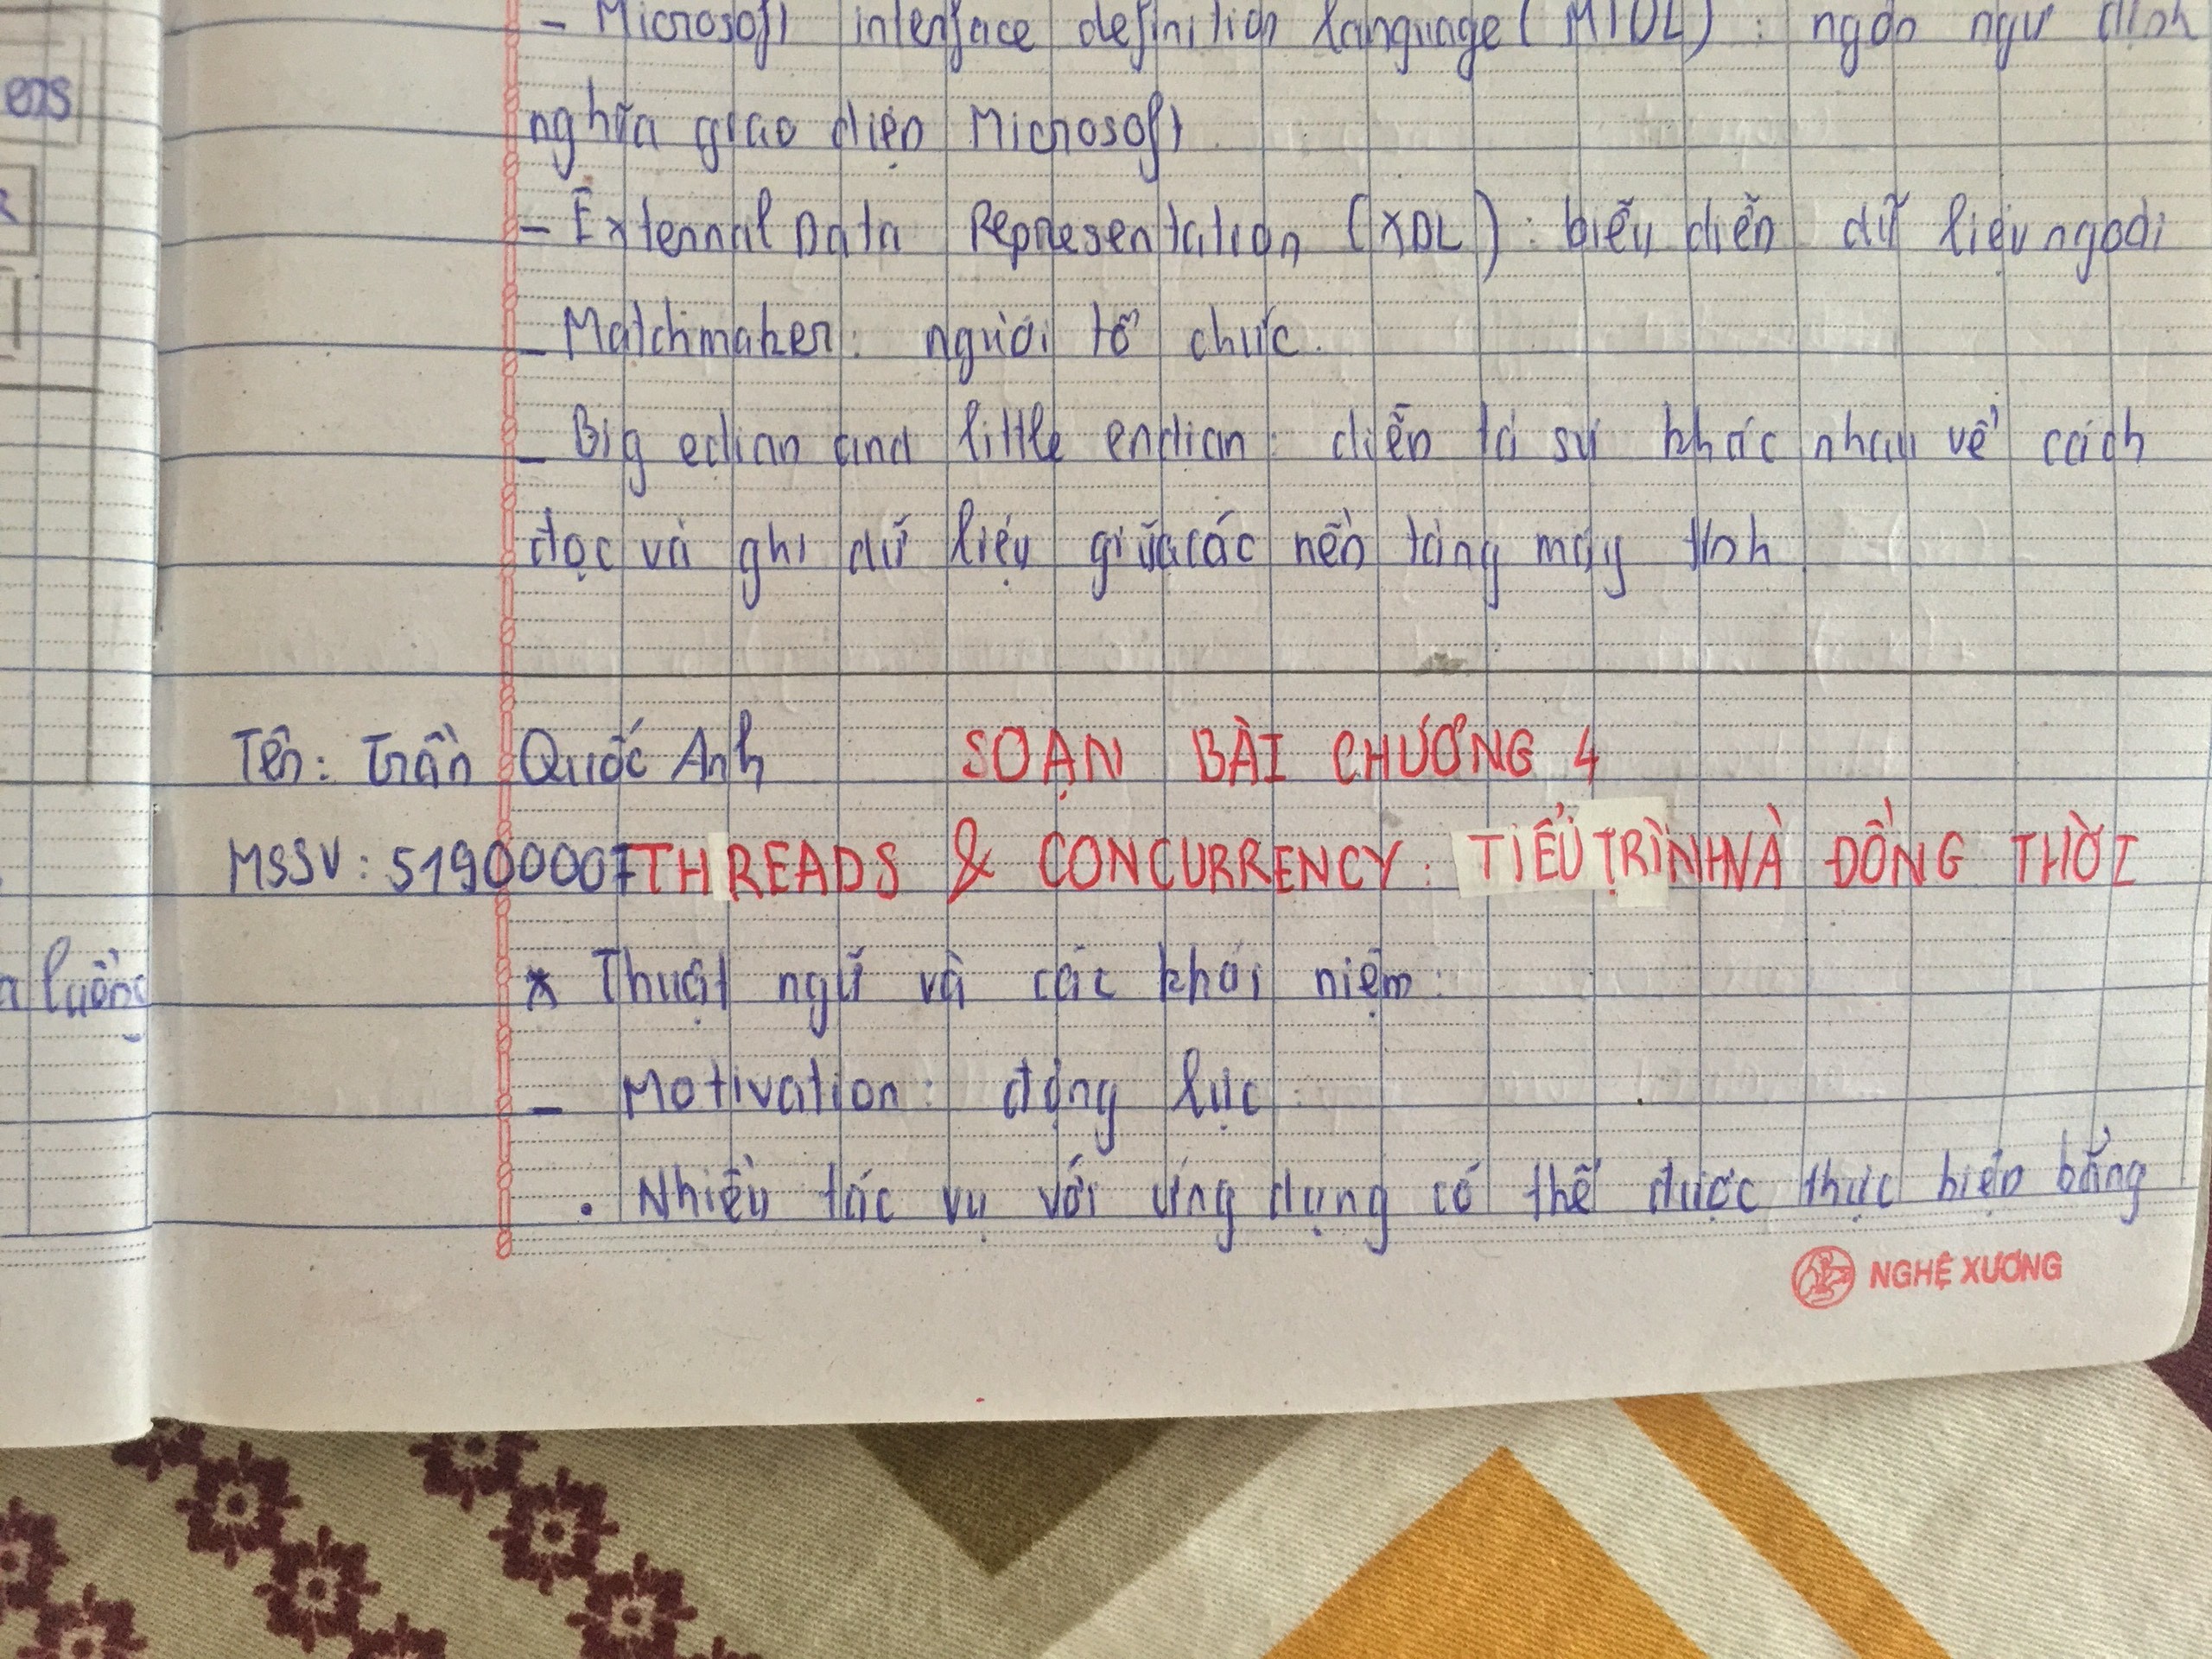 - Microsoft interface definition language (MIDL) : ngôn ngữ định
nghĩa giao diện Microsoft.
- External Data Representation (XDL) : biểu diễn dữ liệu ngoài
- Matchmaker : người tổ chức.
- Big edian and little endian : diễn tả sự khác nhau về cách
đọc và ghi dữ liệu giữa các nền tảng máy tính
Tên: Trần Quốc Anh SOẠN BÀI CHƯƠNG 4
MSSV : 51900007 THREADS & CONCURRENCY : TIỂU TRÌNH VÀ ĐỒNG THỜI
* Thuật ngữ và các khái niệm :
- Motivation : động lực
• Nhiều tác vụ với ứng dụng có thể được thực hiện bằng
NGHỆ XƯƠNG
ens
R
luồng